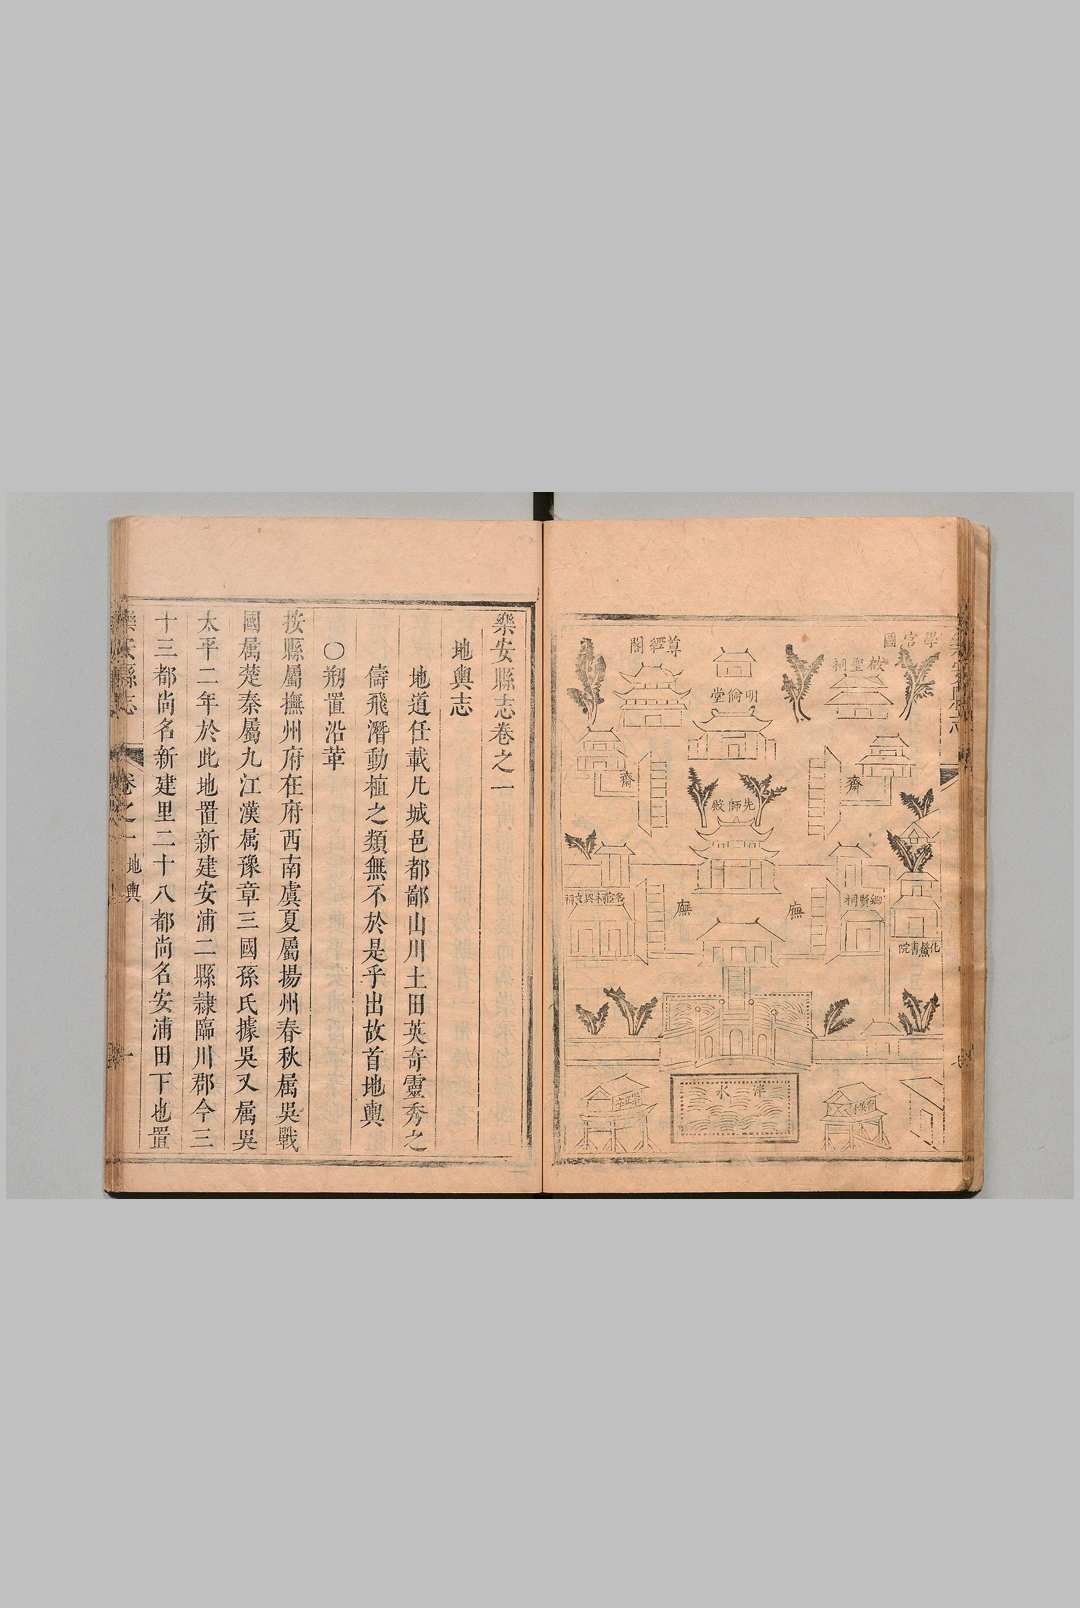 學宮圖
啟聖祠
明倫堂
尊經閣
齋
齋
先師殿
鄉賢祠
廡
廡
化鯤書院
泮水
樂安縣志卷之一
地輿志
地道任載凡城邑都鄙山川土田英奇靈秀之
儔飛潛動植之類無不於是乎出故首地輿
〇剏置沿革
按縣屬撫州府在府西南虞夏屬揚州春秋属吳戰
國属楚秦屬九江漢属豫章三國孫氏據吳又属吳
太平二年於此地置新建安浦二縣隸臨川郡今三
十三都尚名新建里二十八都尚名安浦田下也置
樂安縣志
卷之一
地輿
一